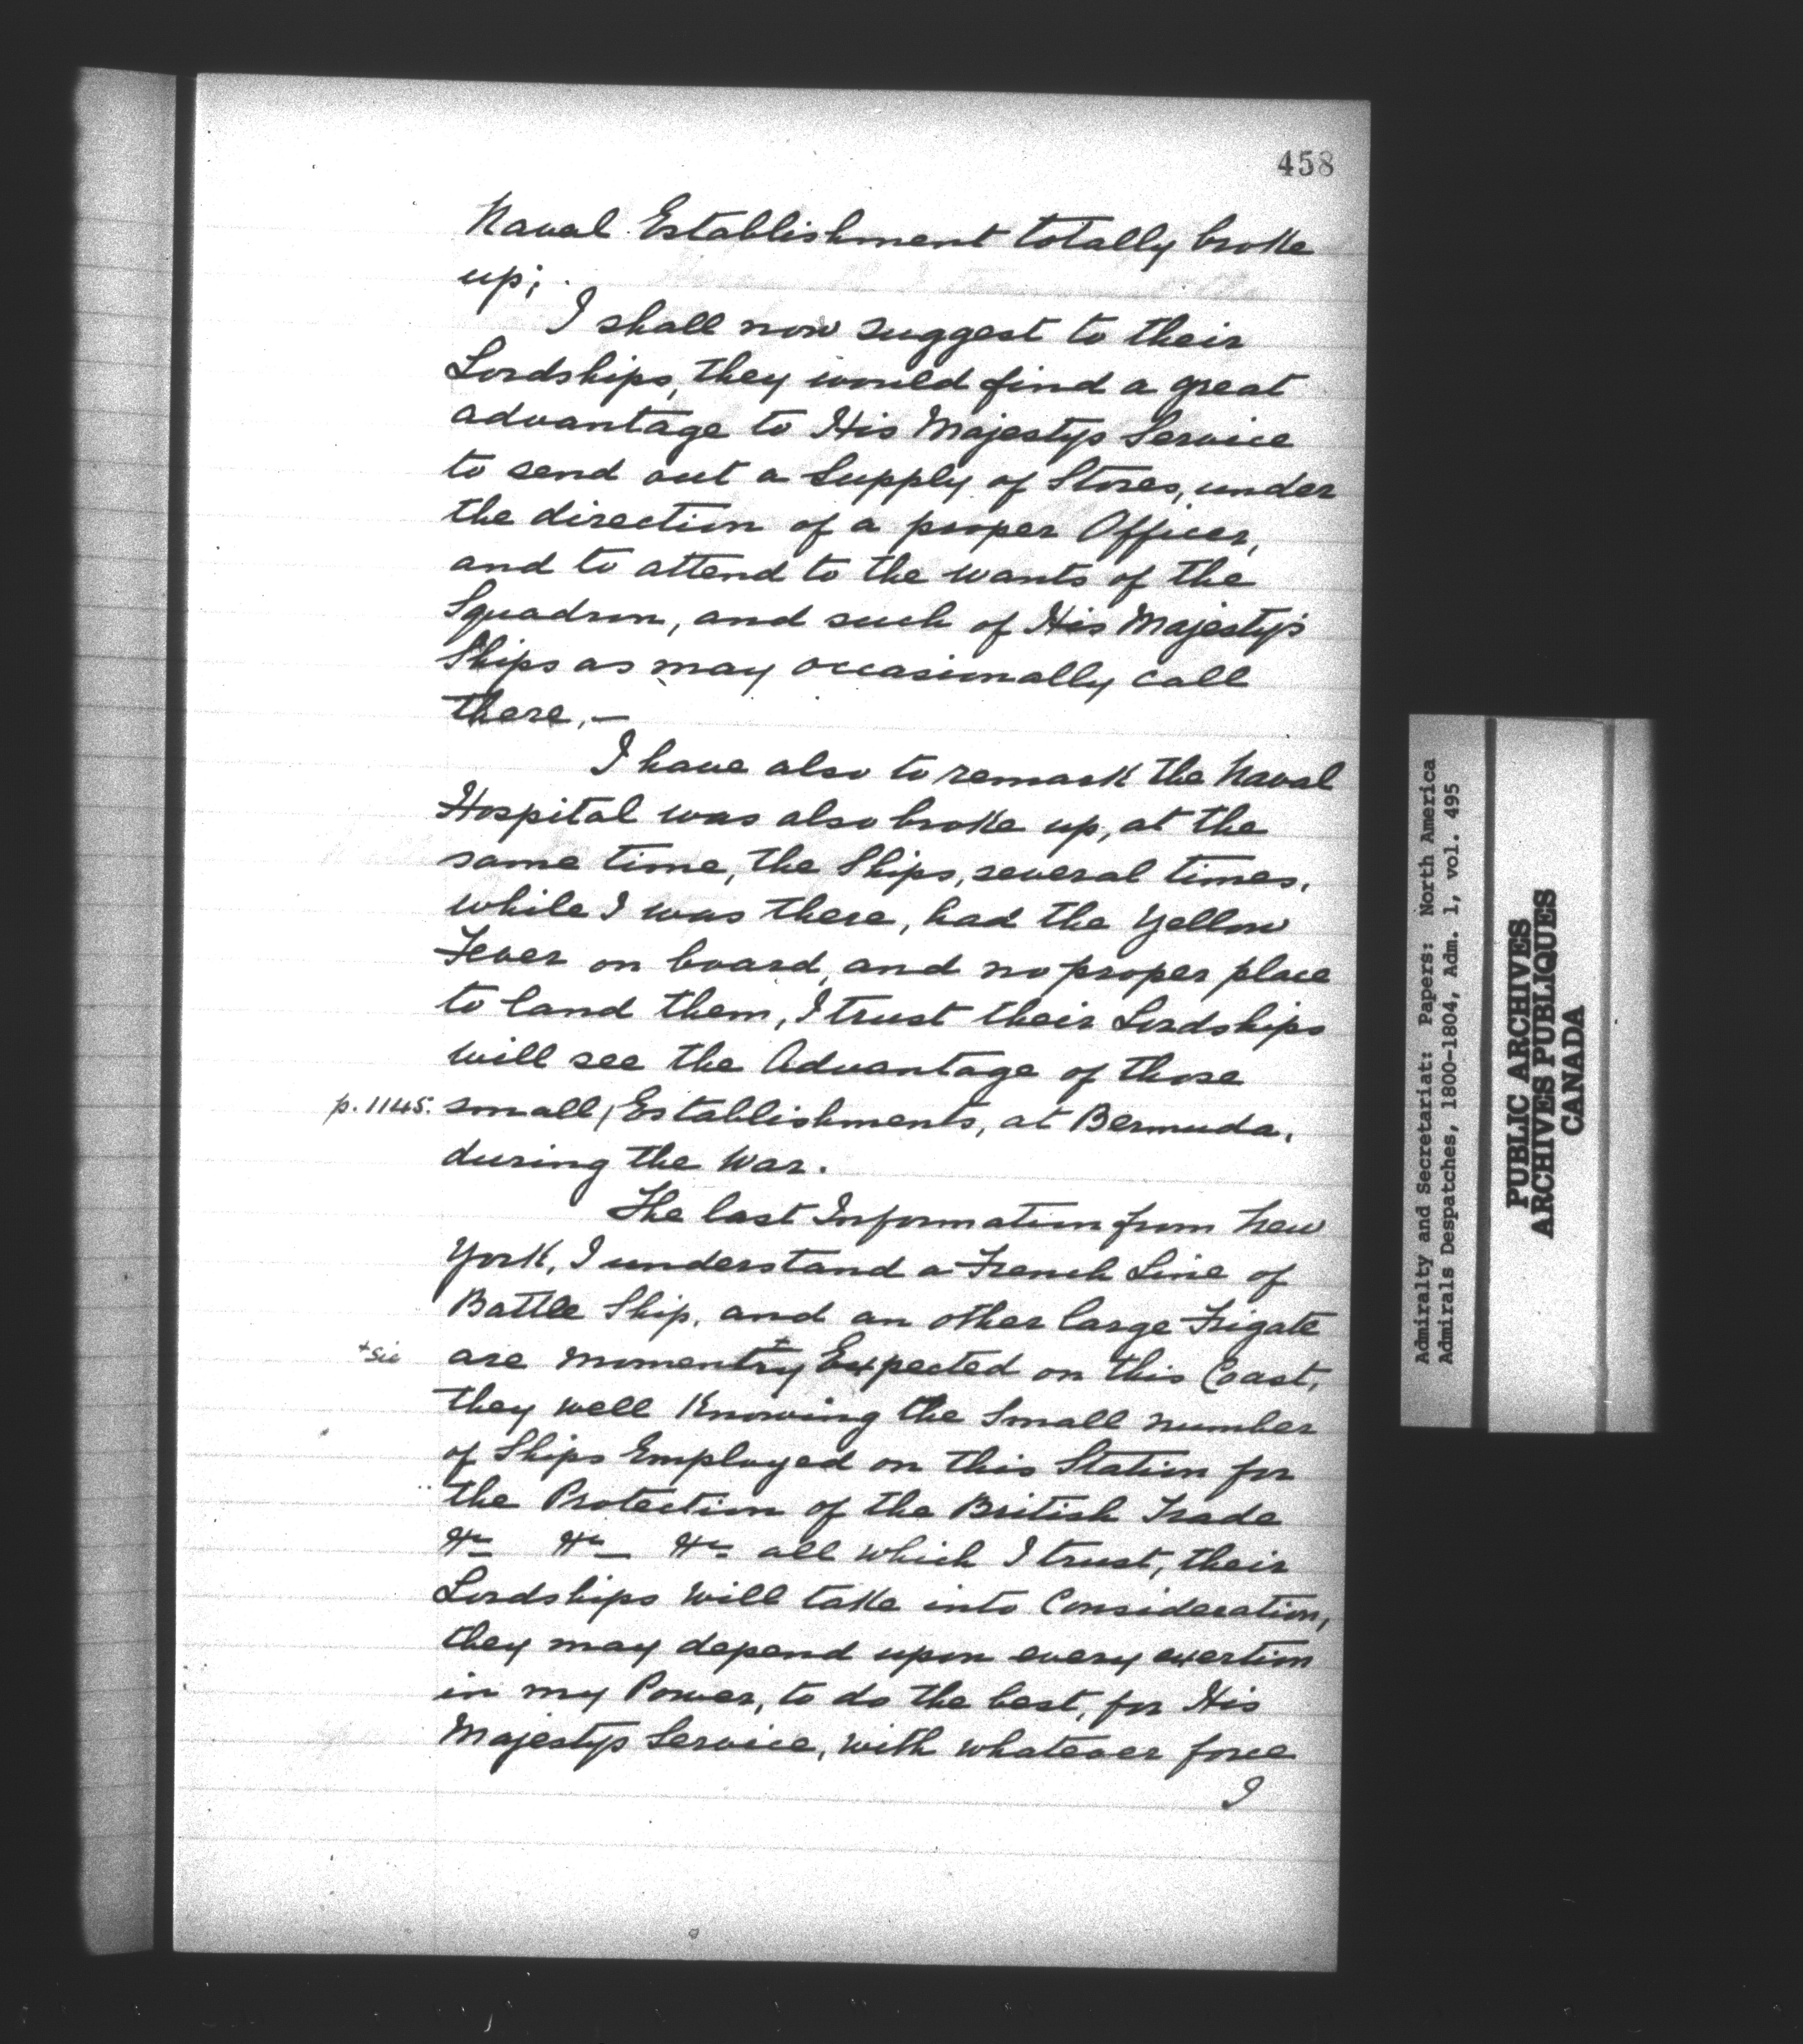 458
Naval Establishment totally broke
up;
I shall now suggest to their
Lordships, they would find a great
advantage to His Majestys Service
to send out a Supply of Stores, under
the direction of a proper Officer,
and to attend to the wants of the
Squadron, and such of His Majesty's
Ships as may occasionally call
there.—
I have also to remark the Naval
Hospital was also broke up, at the
same time, the Ships, several times,
while I was there, had the Yellow
Fever on board, and no proper place
to land them, I trust their Lordships
will see the Advantage of those
p. 1145. small, Establishments, at Bermuda,
during the War.
The last Information from New
York, I understand a French Line of
Battle Ship, and an other large Frigate
+sic are momentry+ Expected on this Coast,
they well Knowing the Small number
of Ships Employed on this Station for
the Protection of the British Trade
&c &c &c all which I trust, their
Lordships will take into Consideration,
they may depend upon every exertion
in my Power, to do the best, for His
Majestys Service, with whatever force
I
Admiralty and Secretariat: Papers: North America
Admirals Despatches, 1800-1804, Adm. 1, vol. 495
PUBLIC ARCHIVES
ARCHIVES PUBLIQUES
CANADA